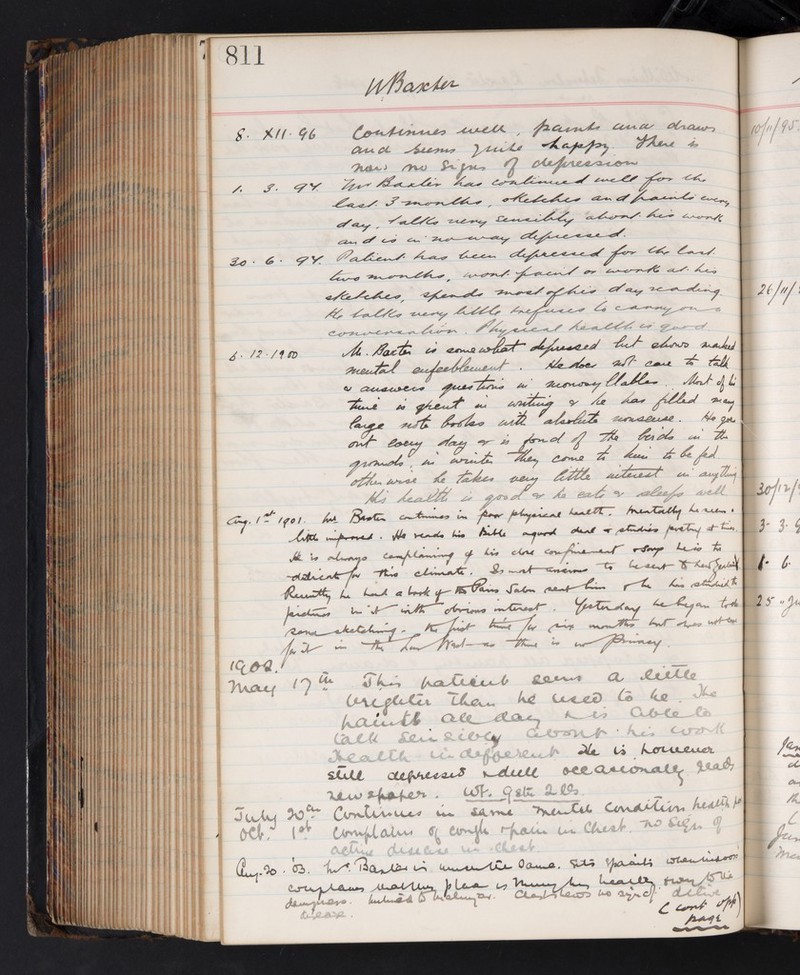 811
W Baxter
8. XII. 96 Continues well, paints and draws
and seems quite happy. There is
now no signs of depression
1. 3. 97. Mr Baxter has continued well for the
last 3 months, sketches and paints every
day, talks very sensibly about his work
and is in no way depressed.
30. 6. 97. Patient has been depressed for the last
two months, wont paint or work at his
sketches, spends most of his day reading
He talks very little & refuses to carry on a
conversation. Physical health is good
6. 12. 1900 Mr. Baxter is somewhat depressed but shows marked
mental enfeeblement. He does not care to talk
& answers questions in monosyllables. Most of his
time is spent in writing & he has filled many
large note books with absolute nonsense. He goes
out every day & is fond of the birds in the
grounds, in winter they come to him to be fed
otherwise he takes very little interest in anything
His health is good & he eats & sleeps well
Aug. 1st 1901. Mr Baxter continues in poor physical health. Mentally he seems a
little improved. He reads his Bible a good deal & studies poetry at times.
He is always complaining of his close confinement & says he is too
delicate for this climate. Is most anxious to be sent to New Zealand
Recently he had a book of the Paris Salon sent him & he has studied the
pictures in it with obvious interest. Yesterday he began to do
some sketching - the first time for six months but does not care
for it in the West as there is no privacy.
1902.
May 17th This patient seems a little
brighter than he used to be. He
paints all day & is able to
talk sensibly about his work
Health indifferent He is however
still depressed & dull occasionally reads
newspaper. Wt. 9st 2 lbs.
July 20th Continues in same mental condition health
Oct. 1st Complains of cough & pain in Chest. no sign of
active disease in chest.
Aug. 20. '03. Mr. Baxter is much the same. paints when indoors
complains that this place is his health owing to the
dampness. inclined to malinger. Chest shews no sign of active
disease.
(cont opp
page)
10/11/95.
26/11/
30/12/
3. 3.
1. 6.
25